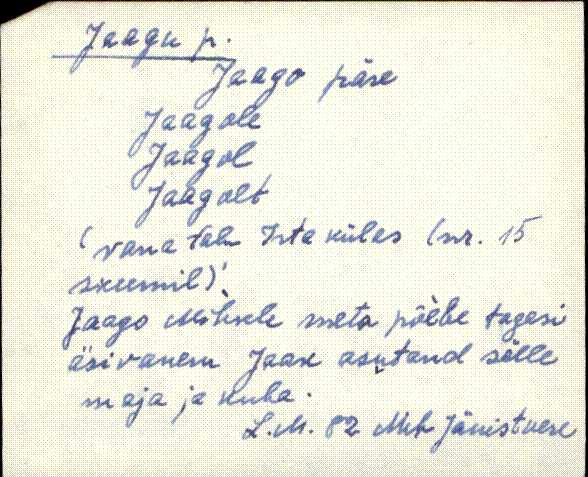 Jaagu p.
Jaago päre
Jaagole
Jaagol
Jaagolt
(vana talu Irta külas (nr. 15
skeemil)
Jaago Mihkle meta põlve tagesi
äsivanem Jaak asutand sèlle
maja ja kuha.
L.M. 82 Mih Jänistvere